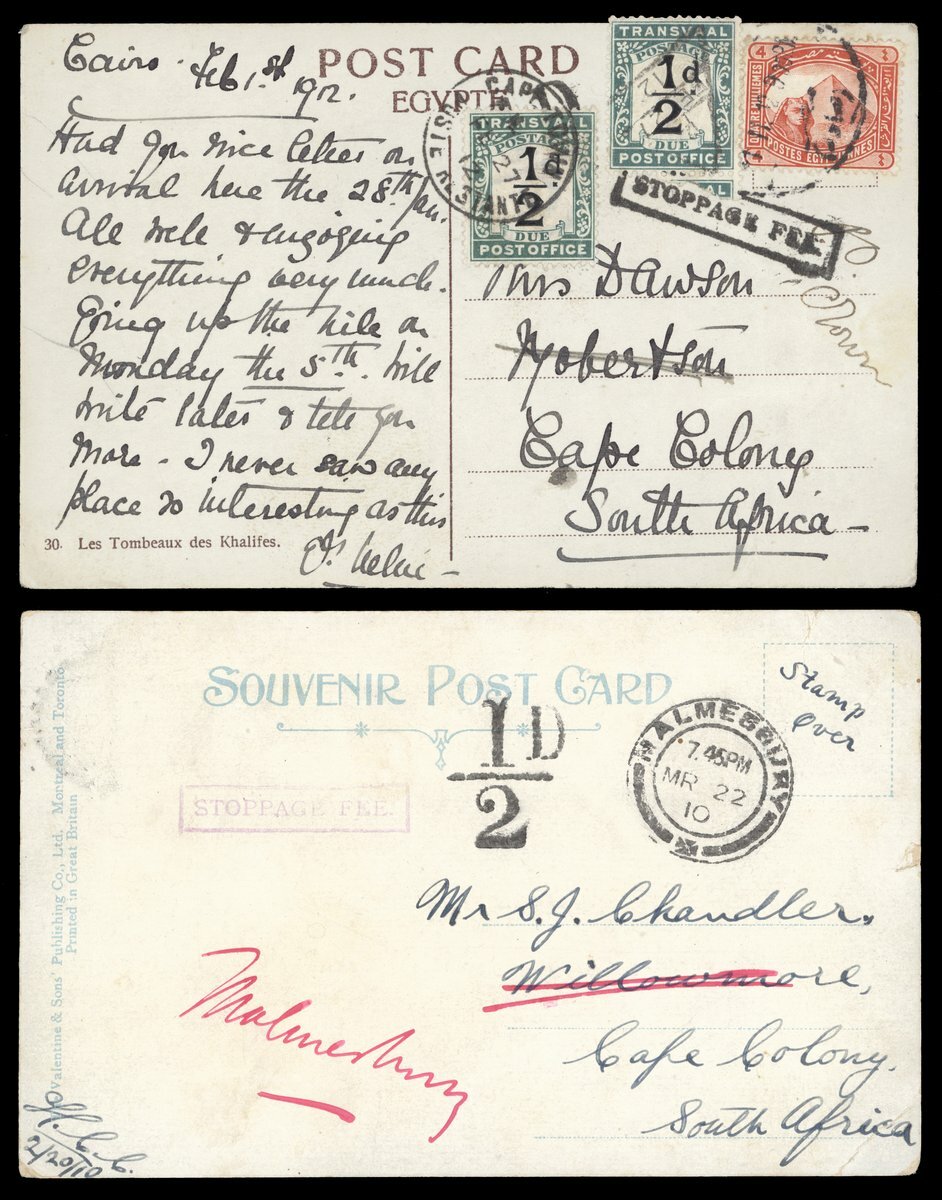 POST CARD
EGYPTE
Cairo. Feb 1.st 1912.
Had you nice letter on
arrival here the 28th Jan.
All well & enjoying
everything very much.
Going up the nile on
Monday the 5th. Will
write later & tell you
more - I never saw any
place so interesting as this
30. Les Tombeaux des Khalifes.
TRANSVAAL
POSTAGE
1/2 d
DUE
POST OFFICE
TRANSVAAL
POSTAGE
1/2 d
DUE
POST OFFICE
4
4
QUATRE MILLIEMES
POSTES EGYPTIENNES
CAPE TOWN
POSTE RESTANTE
27
12
STOPPAGE FEE.
Mrs Dawson
Robertson
Cape Colony
South Africa -
SOUVENIR POST CARD
Stamp
Over
1/2 D
STOPPAGE FEE.
MALMESBURY
7.45PM
MR 22
10
Mr S. J. Chandler,
Willowmore,
Cape Colony,
South Africa
Malmesbury
Valentine & Sons' Publishing Co., Ltd. Montreal and Toronto
Printed in Great Britain
2/20/10